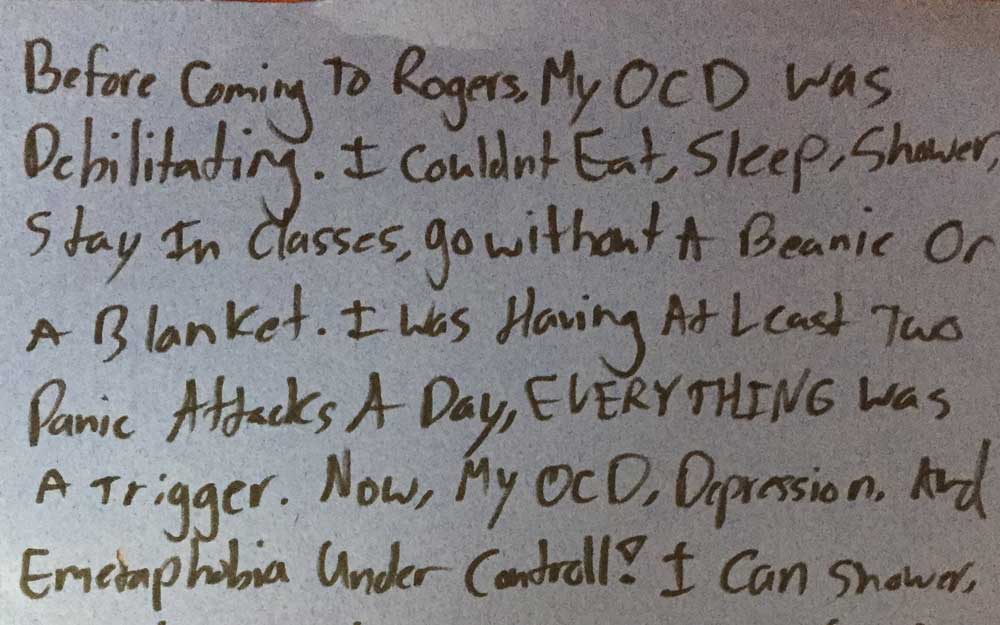 Before Coming To Rogers, My OCD was
Debilitading. I Couldnt Eat, Sleep, Shower,
Stay In Classes, go without A Beanie Or
A Blanket. I Was Having At Least Two
Panic Attacks A Day, EVERYTHING Was
A Trigger. Now, My OCD, Depression, And
Emetaphobia Under Controll! I Can Shower,